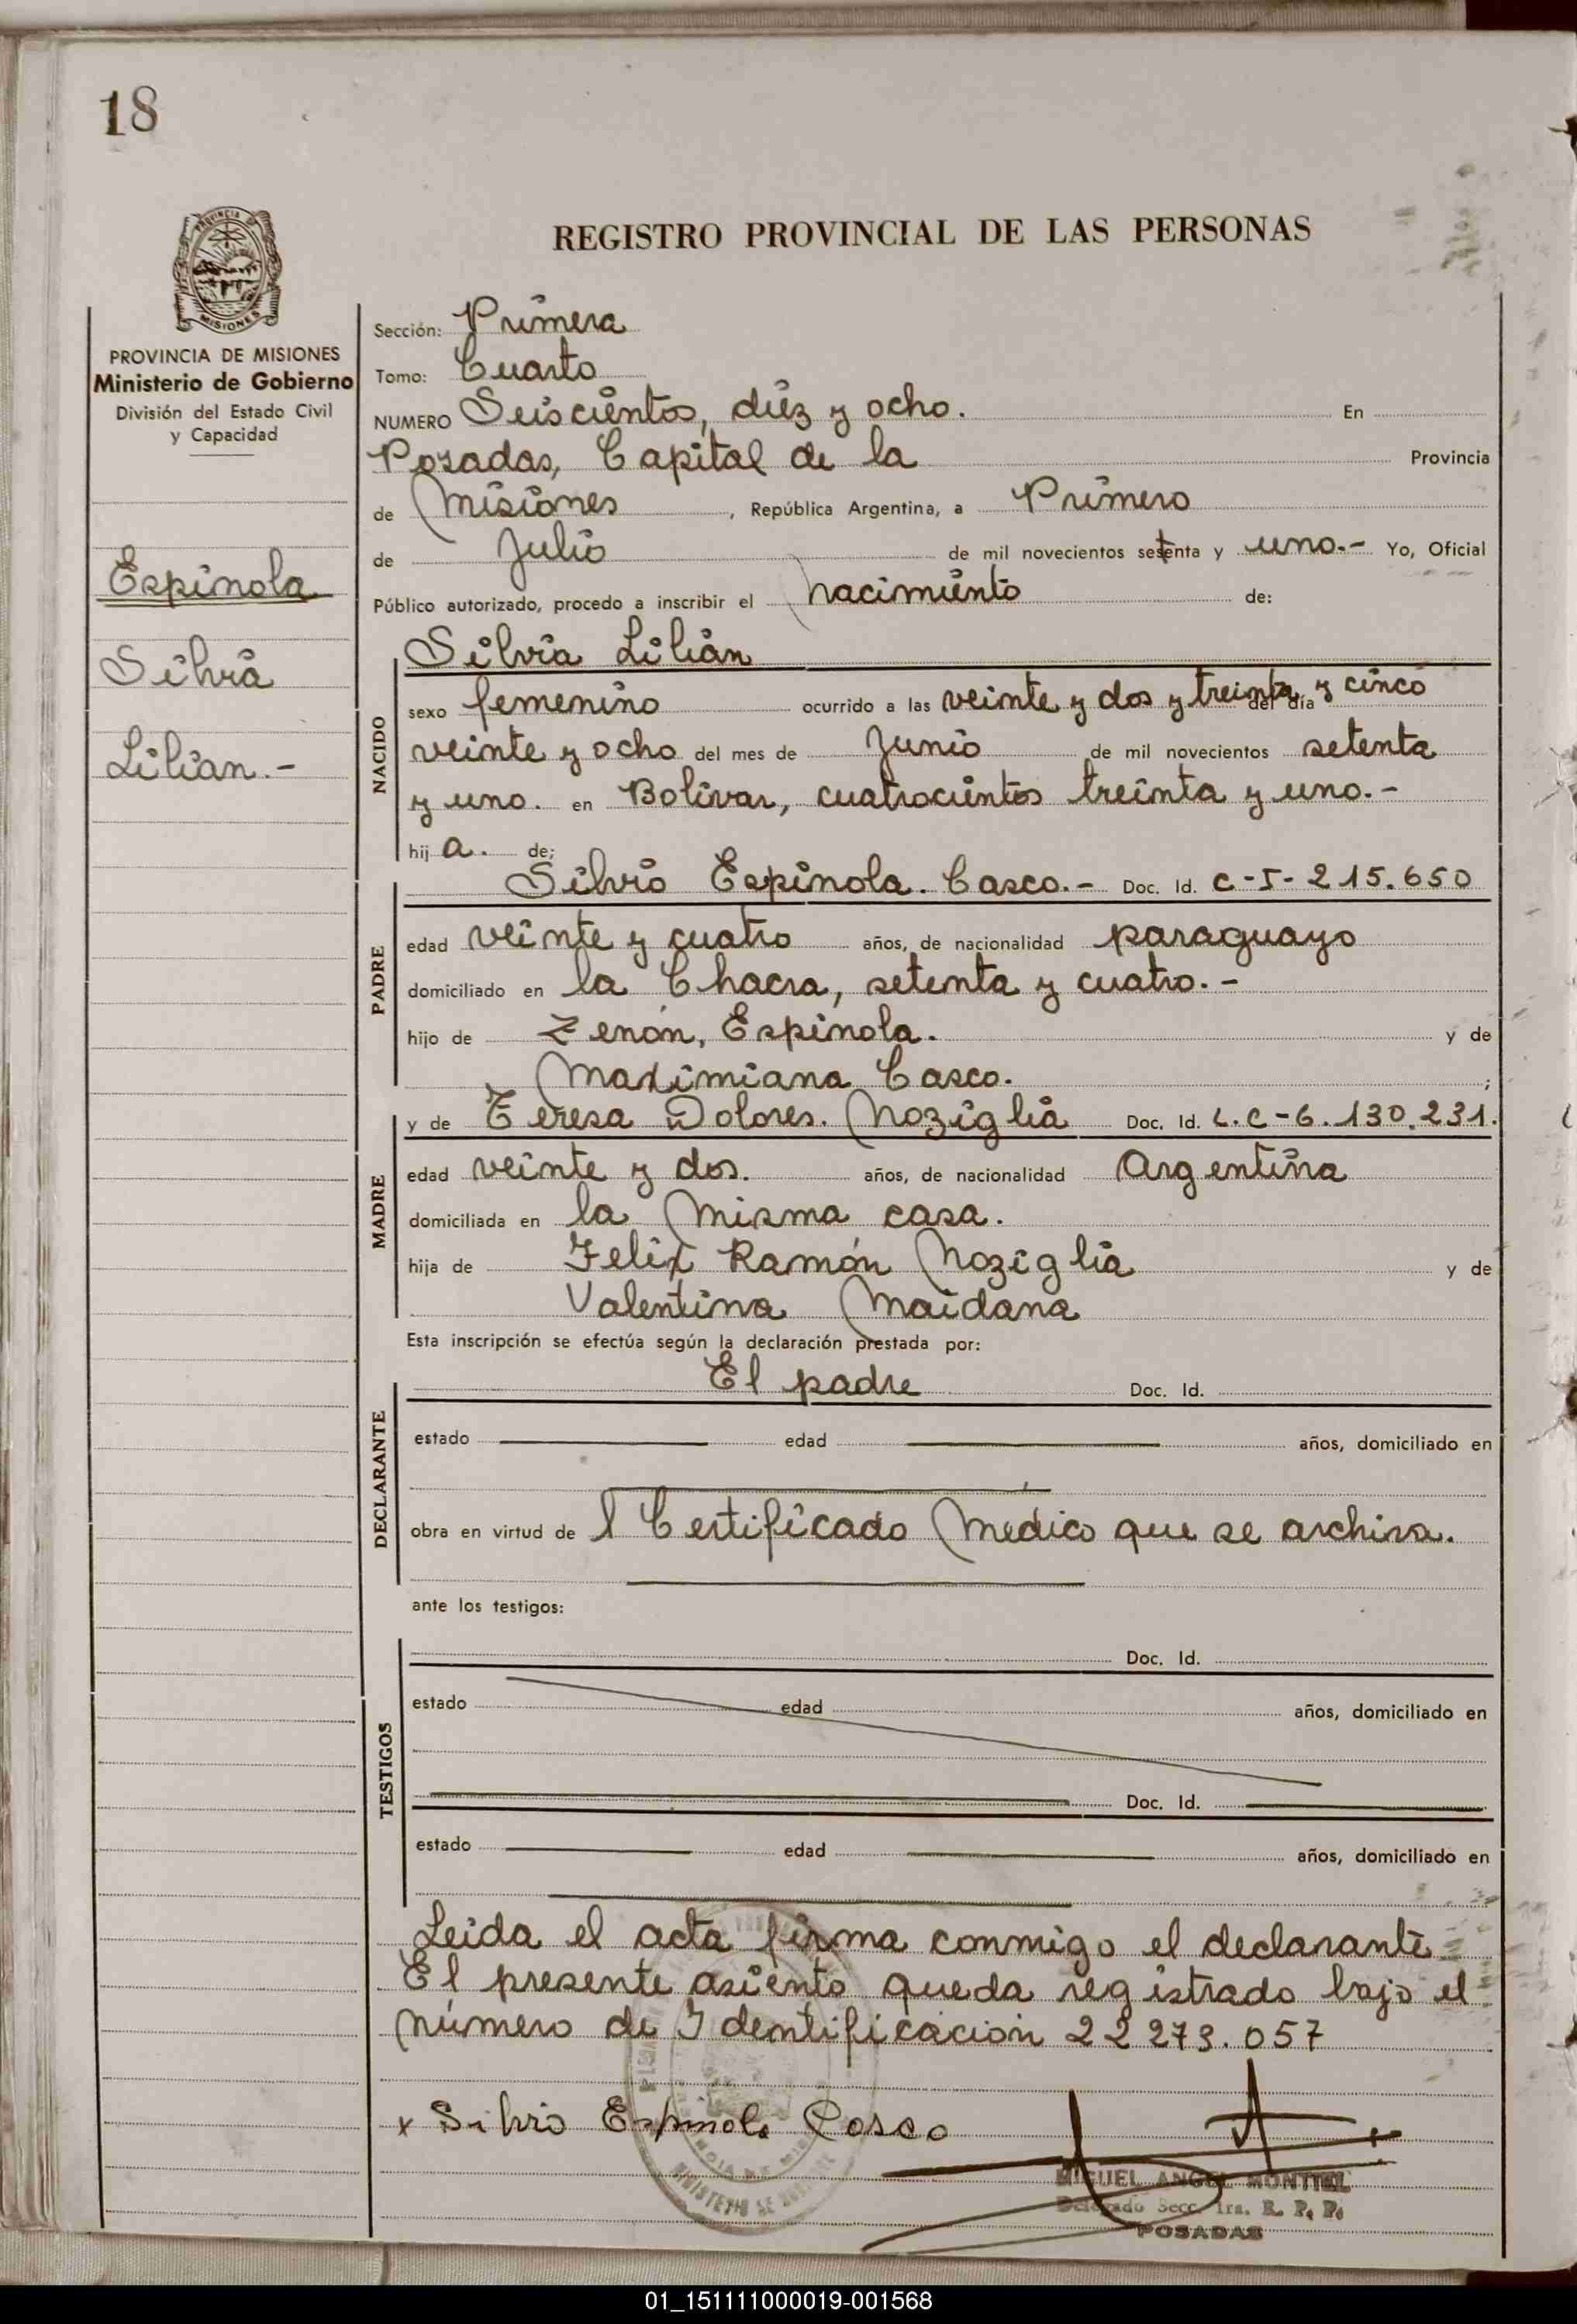 18
PROVINCIA DE
MISIONES
REGISTRO PROVINCIAL DE LAS PERSONAS
PROVINCIA DE MISIONES
Ministerio de Gobierno
División del Estado Civil
y Capacidad
Espínola
Silvia
Lilian.-
Sección: Primera
Tomo: Cuarto
NUMERO Seiscientos, diez y ocho. En
Posadas, Capital de la Provincia
de Misiones, República Argentina, a Primero
de Julio de mil novecientos setenta y uno.- Yo, Oficial
Público autorizado, procedo a inscribir el nacimiento de:
Silvia Lilian
NACIDO
sexo femenino ocurrido a las veinte y dos y treinta y cinco del día
veinte y ocho del mes de Junio de mil novecientos setenta
y uno. en Bolivar, cuatrocientos treinta y uno.-
hij a. de:
Silvio Espínola. Casco.- Doc. Id. C-I-215.650
PADRE
edad veinte y cuatro años, de nacionalidad paraguayo
domiciliado en la Chacra, setenta y cuatro.-
hijo de Zenón, Espínola. y de
Maximiana Casco. ;
y de Teresa Dolores. Noziglia Doc. Id. L.C-6.130.231.
MADRE
edad veinte y dos. años, de nacionalidad Argentina
domiciliada en la misma casa.
hija de Felix Ramón Noziglia y de
Valentina Maidana
Esta inscripción se efectúa según la declaración prestada por:
El padre Doc. Id.
DECLARANTE
estado edad años, domiciliado en
obra en virtud de l Certificado Médico que se archiva.
ante los testigos:
Doc. Id.
TESTIGOS
estado edad años, domiciliado en
Doc. Id.
estado edad años, domiciliado en
Leida el acta firma conmigo el declarante
El presente asiento queda registrado bajo el
número de Identificación 22 273.057
x Silvio Espinola Casco
MIGUEL ANGEL MONTIEL
Delegado Secc. 1ra. R. P. P.
POSADAS
01_151111000019-001568